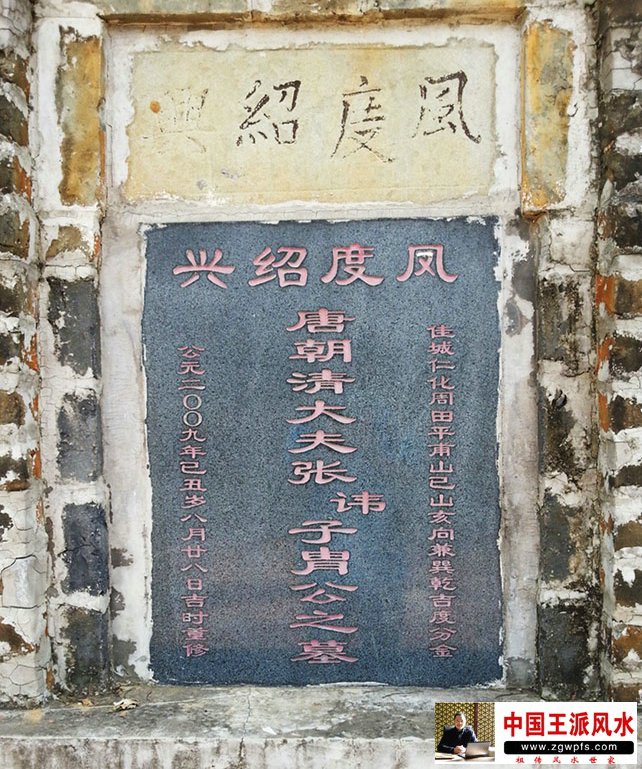 風度紹興
风度绍兴
佳城仁化周田平甫山巳山亥向兼巽乾吉度分金
唐朝清大夫张讳子胄公之墓
公元二〇〇九年己丑岁八月廿八日吉时重修
中国王派风水
www.zgwpfs.com
祖传风水世家